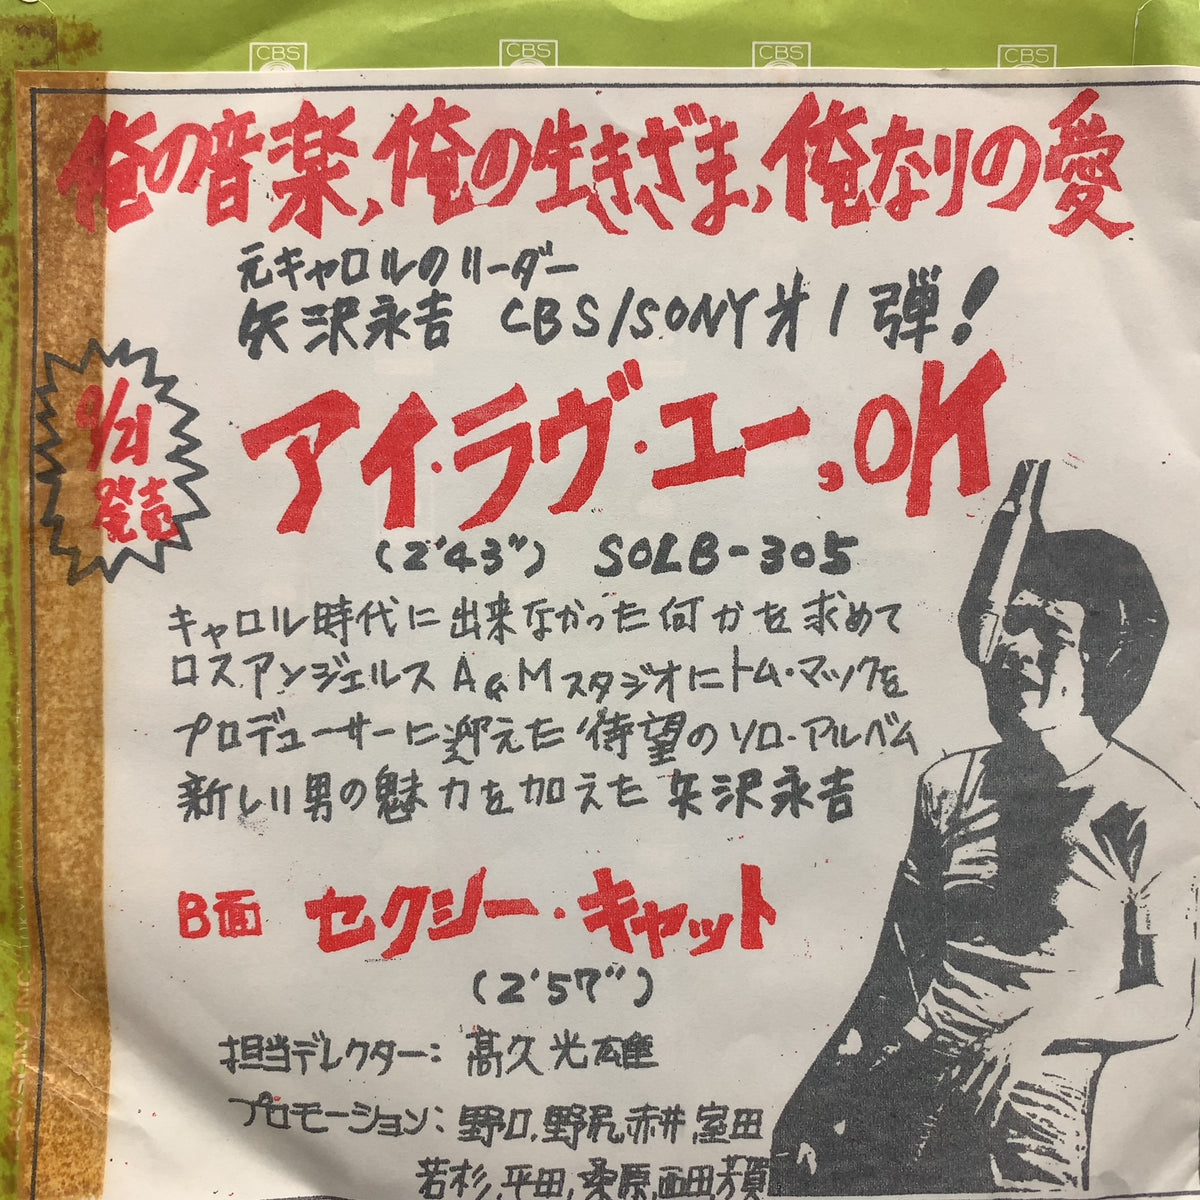 CBS CBS CBS CBS
俺の音楽,俺の生きざま,俺なりの愛
元キャロルのリーダー
矢沢永吉 CBS/SONY才1弾!
9/21
発売
アイ・ラヴ・ユー,OK
(2'43") SOLB-305
キャロル時代に出来なかった何かを求めて
ロスアンジェルスA&MスタジオにトムマックをS
プロデューサーに迎えた待望のソロ・アルバム
新しい男の魅力を加えた矢沢永吉
B面 セクシー・キャット
(2'57")
担当デレクター: 髙久光雄
プロモーション: 野口,野尻,赤井,室田
若杉,平田,桑原,西田